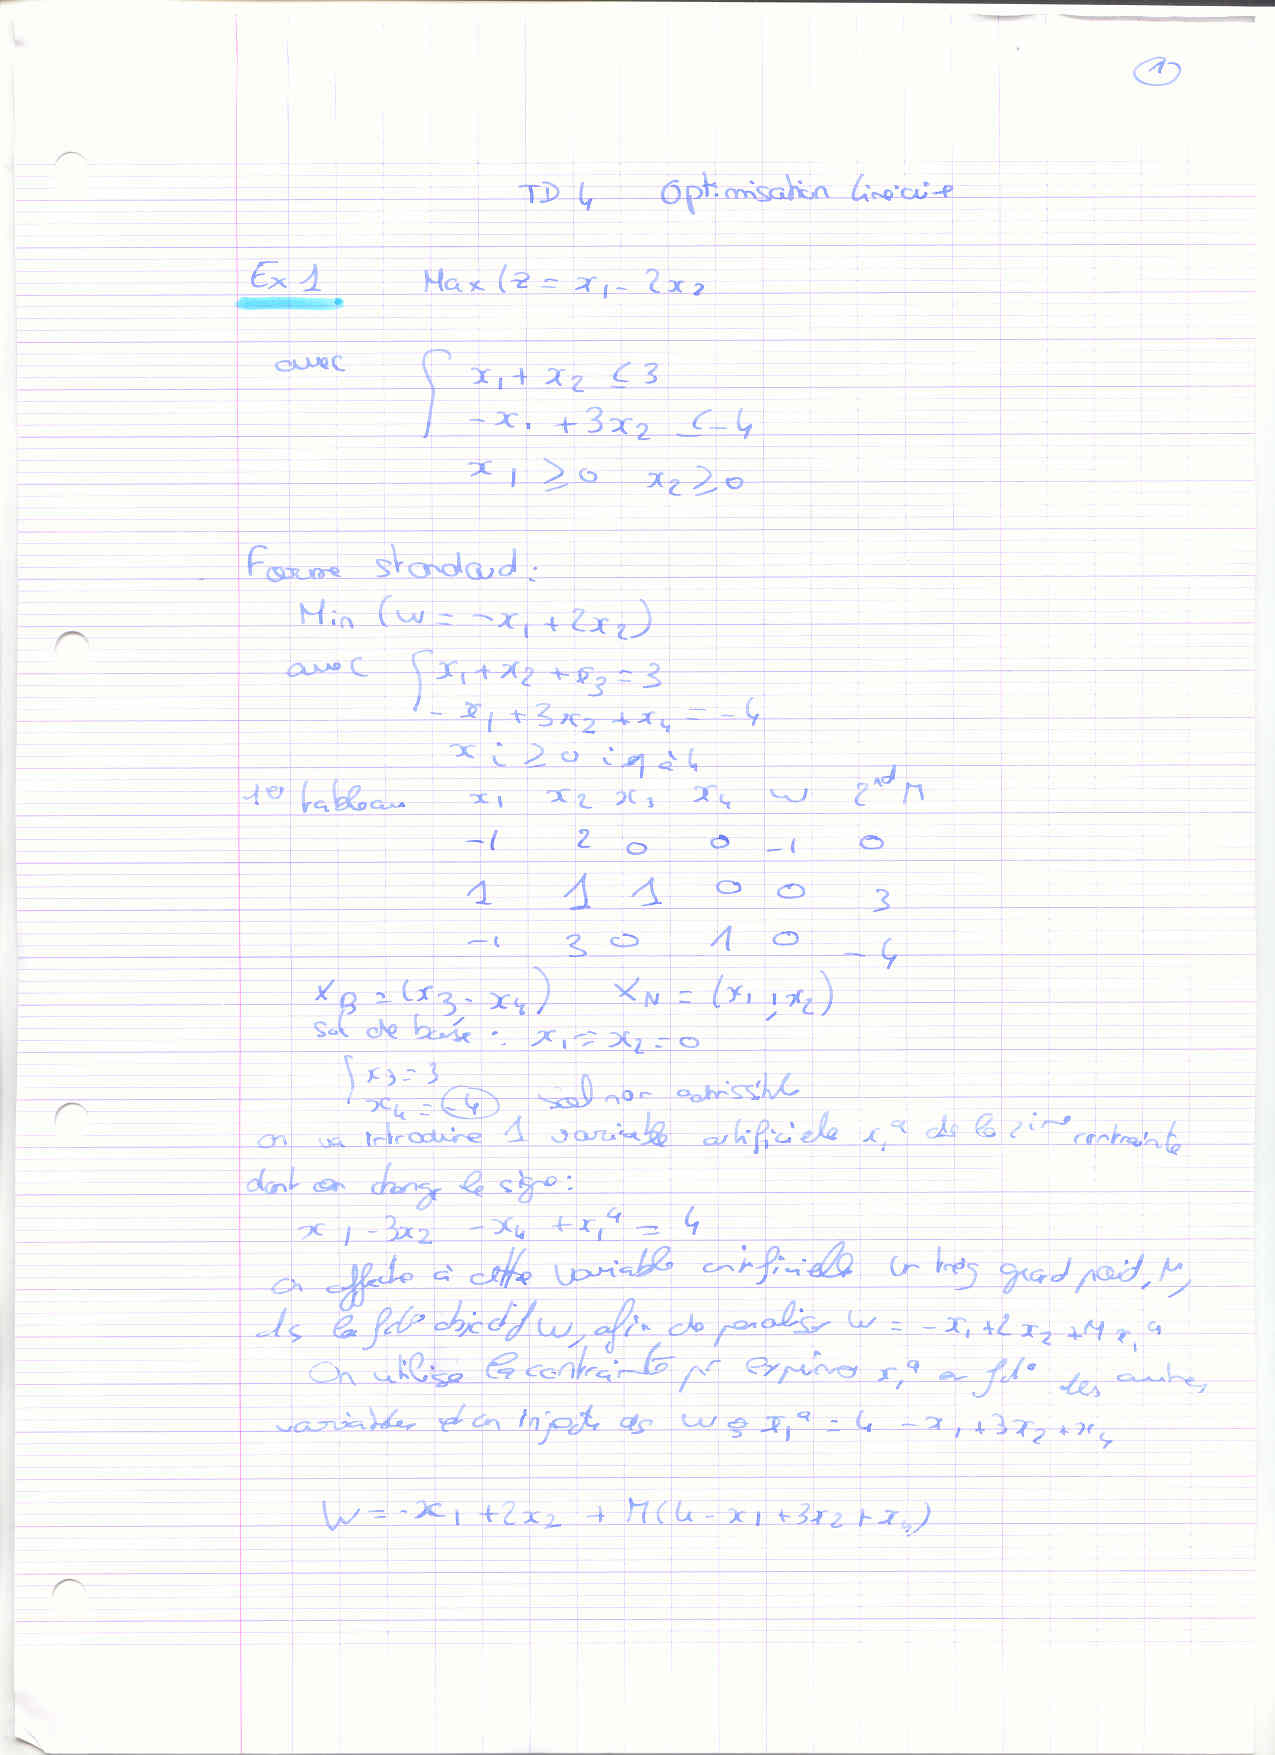 1
TD 4 Optimisation linéaire
Ex 1 Max (z = x₁ - 2x₂
avec { x₁ + x₂ ≤ 3
-x₁ + 3x₂ ≤ -4
x₁ ≥ 0 x₂ ≥ 0
Forme standard :
Min (w = -x₁ + 2x₂)
avec { x₁ + x₂ + x₃ = 3
-x₁ + 3x₂ + x₄ = -4
xi ≥ 0 i 1 à 4
1er tableau x₁ x₂ x₃ x₄ w 2nd M
-1 2 0 0 -1 0
1 1 1 0 0 3
-1 3 0 1 0 -4
X_B = (x₃, x₄) X_N = (x₁, x₂)
sol de base : x₁ = x₂ = 0
{ x₃ = 3
x₄ = -4 sol non admissible
on va introduire 1 variable artificielle x₁ᵃ ds la 2ième contrainte
dont on change le signe :
x₁ - 3x₂ - x₄ + x₁ᵃ = 4
on affecte à cette variable artificielle un très grand poid, M,
ds la fct° objectif w, afin de penaliser w = -x₁ + 2x₂ + M x₁ᵃ
On utilise la contrainte pr exprimer x₁ᵃ en fct° des autres
variables et on injecte ds w x₁ᵃ = 4 - x₁ + 3x₂ + x₄
W = -x₁ + 2x₂ + M(4 - x₁ + 3x₂ + x₄)